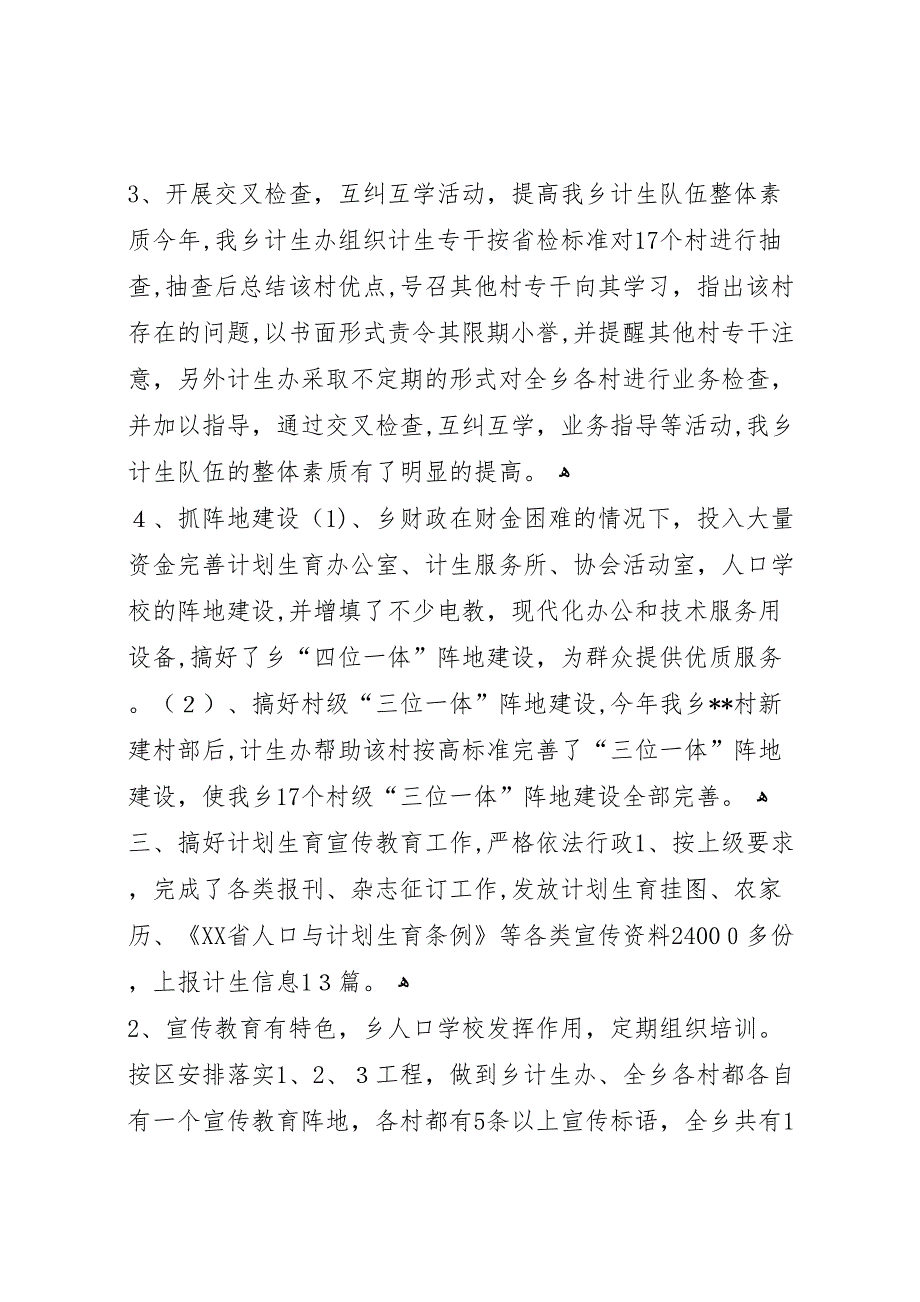 3、开展交叉检查，互纠互学活动，提高我乡计生队伍整体素
质今年,我乡计生办组织计生专干按省检标准对17个村进行抽
查,抽查后总结该村优点,号召其他村专干向其学习，指出该村
存在的问题,以书面形式责令其限期小誉,并提醒其他村专干注
意，另外计生办采取不定期的形式对全乡各村进行业务检查，
并加以指导，通过交叉检查,互纠互学，业务指导等活动,我乡
计生队伍的整体素质有了明显的提高。 ﻫ
４、抓阵地建设（1)、乡财政在财金困难的情况下，投入大量
资金完善计划生育办公室、计生服务所、协会活动室，人口学
校的阵地建设,并增填了不少电教，现代化办公和技术服务用
设备,搞好了乡“四位一体”阵地建设，为群众提供优质服务
。（２）、搞好村级“三位一体”阵地建设,今年我乡**村新
建村部后,计生办帮助该村按高标准完善了“三位一体”阵地
建设，使我乡17个村级“三位一体”阵地建设全部完善。 ﻫ
三、搞好计划生育宣传教育工作,严格依法行政1、按上级要求
，完成了各类报刊、杂志征订工作,发放计划生育挂图、农家
历、《XX省人口与计划生育条例》等各类宣传资料2400０多份
，上报计生信息1３篇。 ﻫ
2、宣传教育有特色，乡人口学校发挥作用，定期组织培训。
按区安排落实1、2、３工程，做到乡计生办、全乡各村都各自
有一个宣传教育阵地，各村都有5条以上宣传标语，全乡共有1